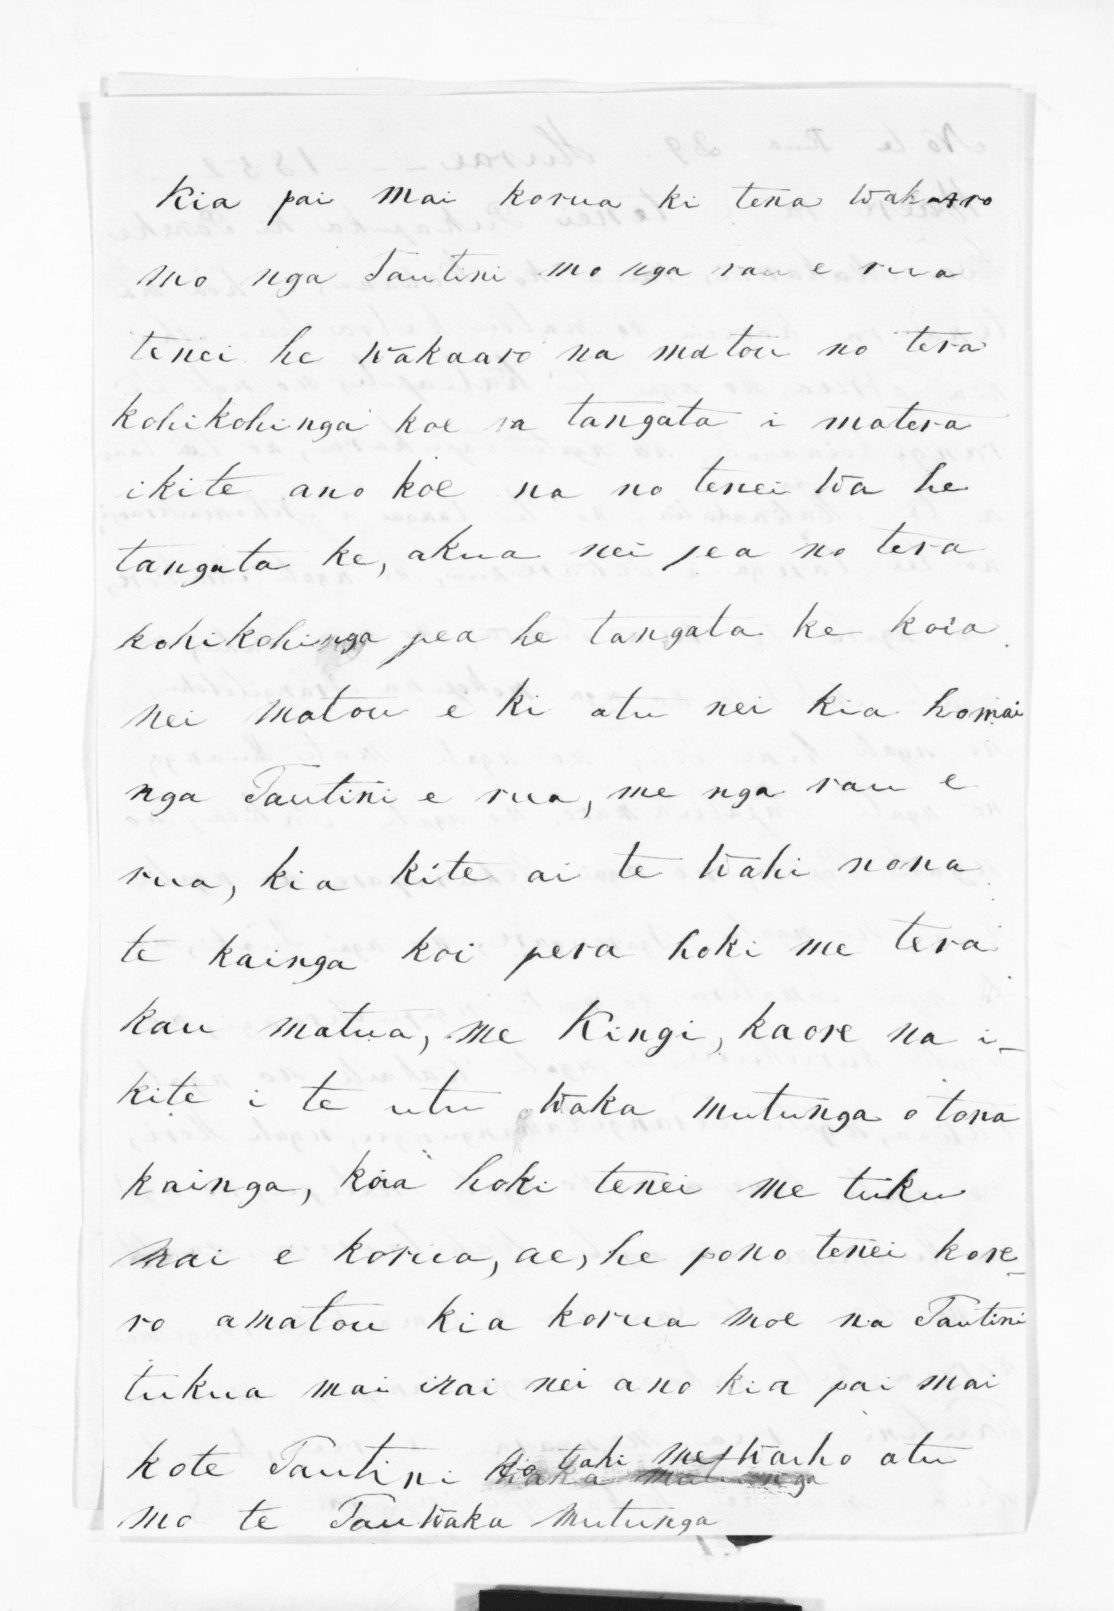 Kia pai mai korua ki tena Wakaaro
mo nga Tautini mo nga rau e rua
tenei he Wakaaro na matou no tera
kohikohinga koe ra tangata i matera
ikite ano koe na no tenei Wa he
tangata ke, akua nei pea no tera
kohikohinga pea he tangata ke koia
nei matou e ki atu nei kia homai
nga Tautini e rua, me nga rau e
rua, kia kite ai te Wahi nona
te kainga koi pera hoki me tera
kau matua, me Kingi, kaore na i-
kite i te utu Waka mutunga o tona
kainga, koia hoki tenei me tuku
mai e korua, ae, he pono tenei kore-
ro amatou kia korua moe na Tautini
tukua mai irai nei ano kia pai mai
kote Tautini Wahi me Waiho atu
mo te TauWaka mutunga